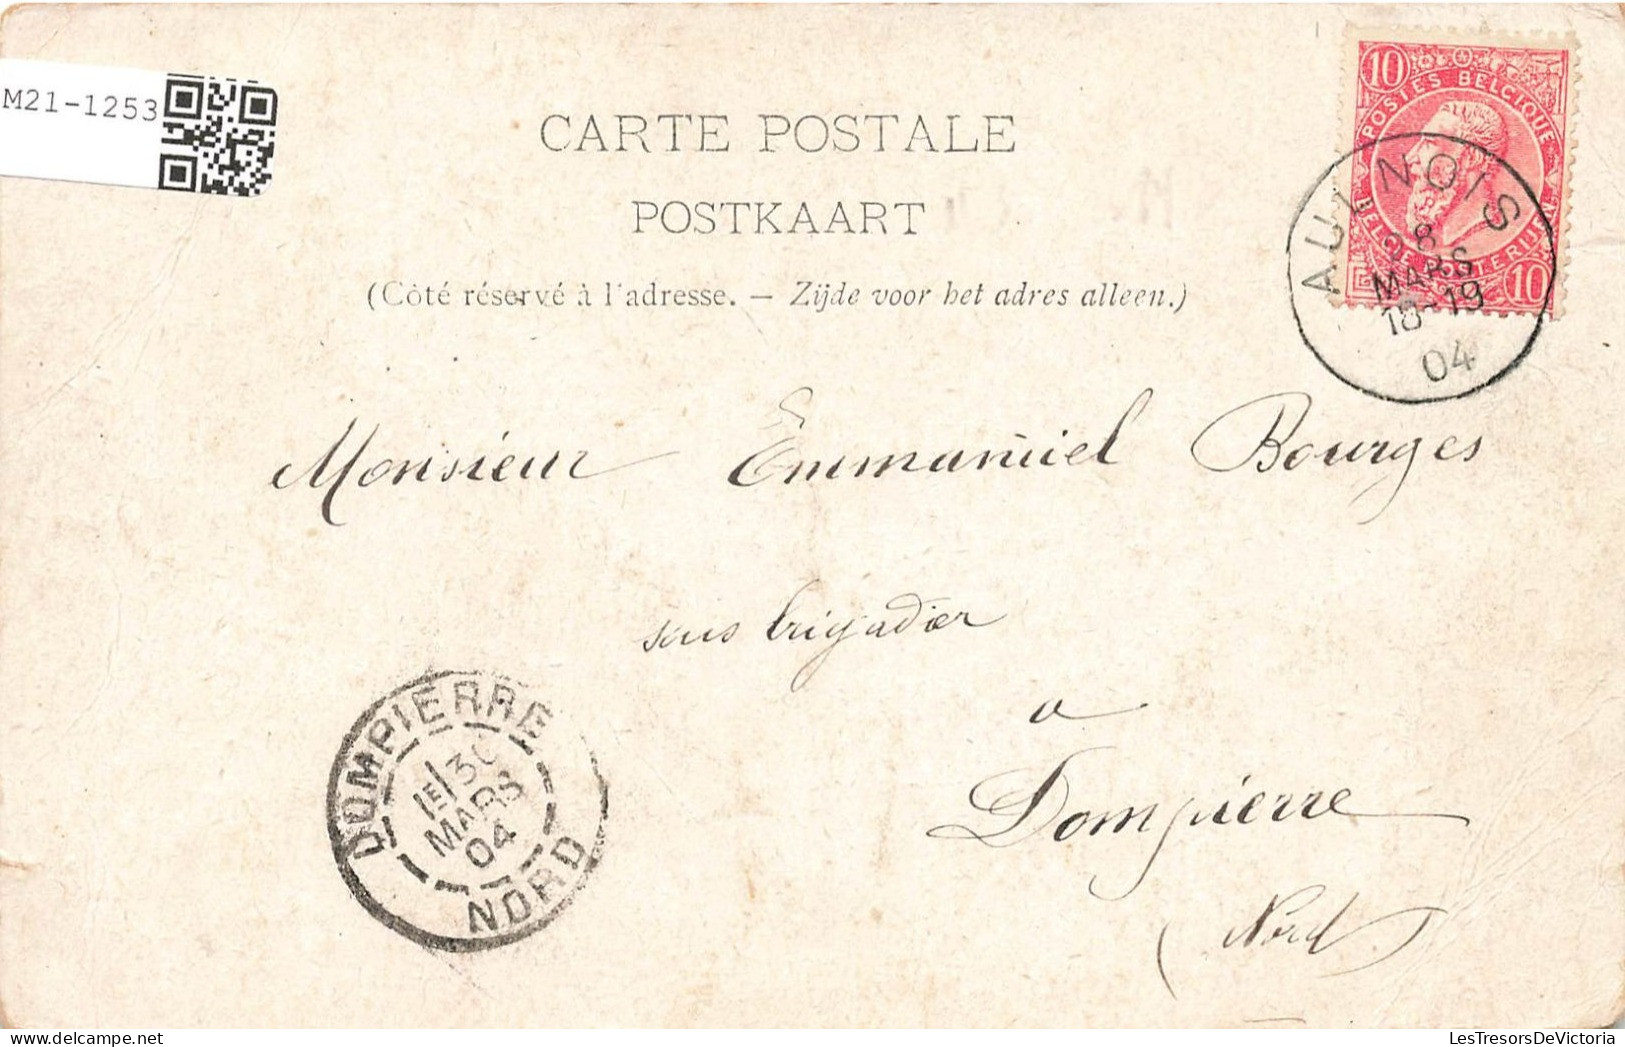 M21-1253
CARTE POSTALE
POSTKAART
(Côté réservé à l'adresse. — Zijde voor het adres alleen.)
10
POSTES BELGIQUE
BELGIE POSTERIJEN
10
AULNOIS
28
MARS
18-19
04
Monsieur Emmanuel Bourges
sous brigadier
a
Dompierre
(Nord)
DOMPIERRE
1E/30
MARS
04
NORD
LesTresorsDeVictoria